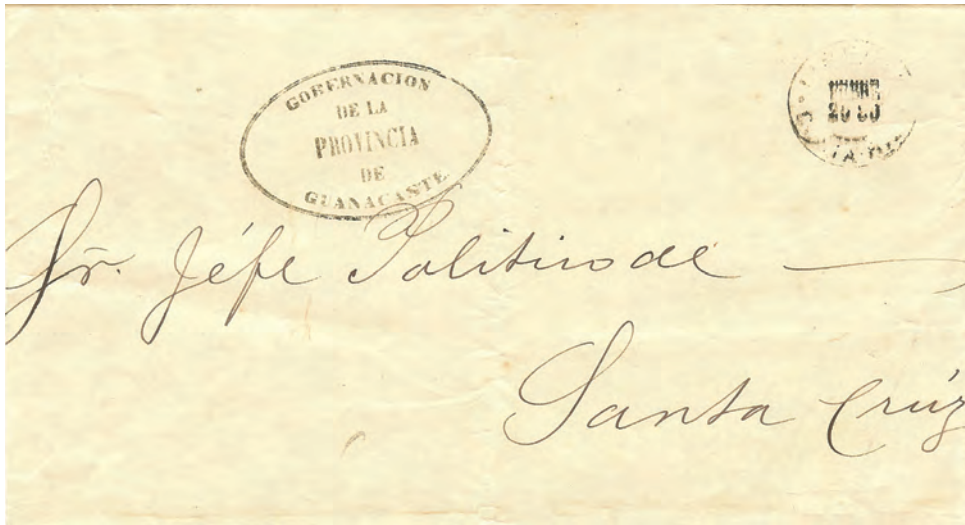 GOBERNACION
DE LA
PROVINCIA
DE
GUANACASTE
Sr. Jéfe Politico de
Santa Crúz